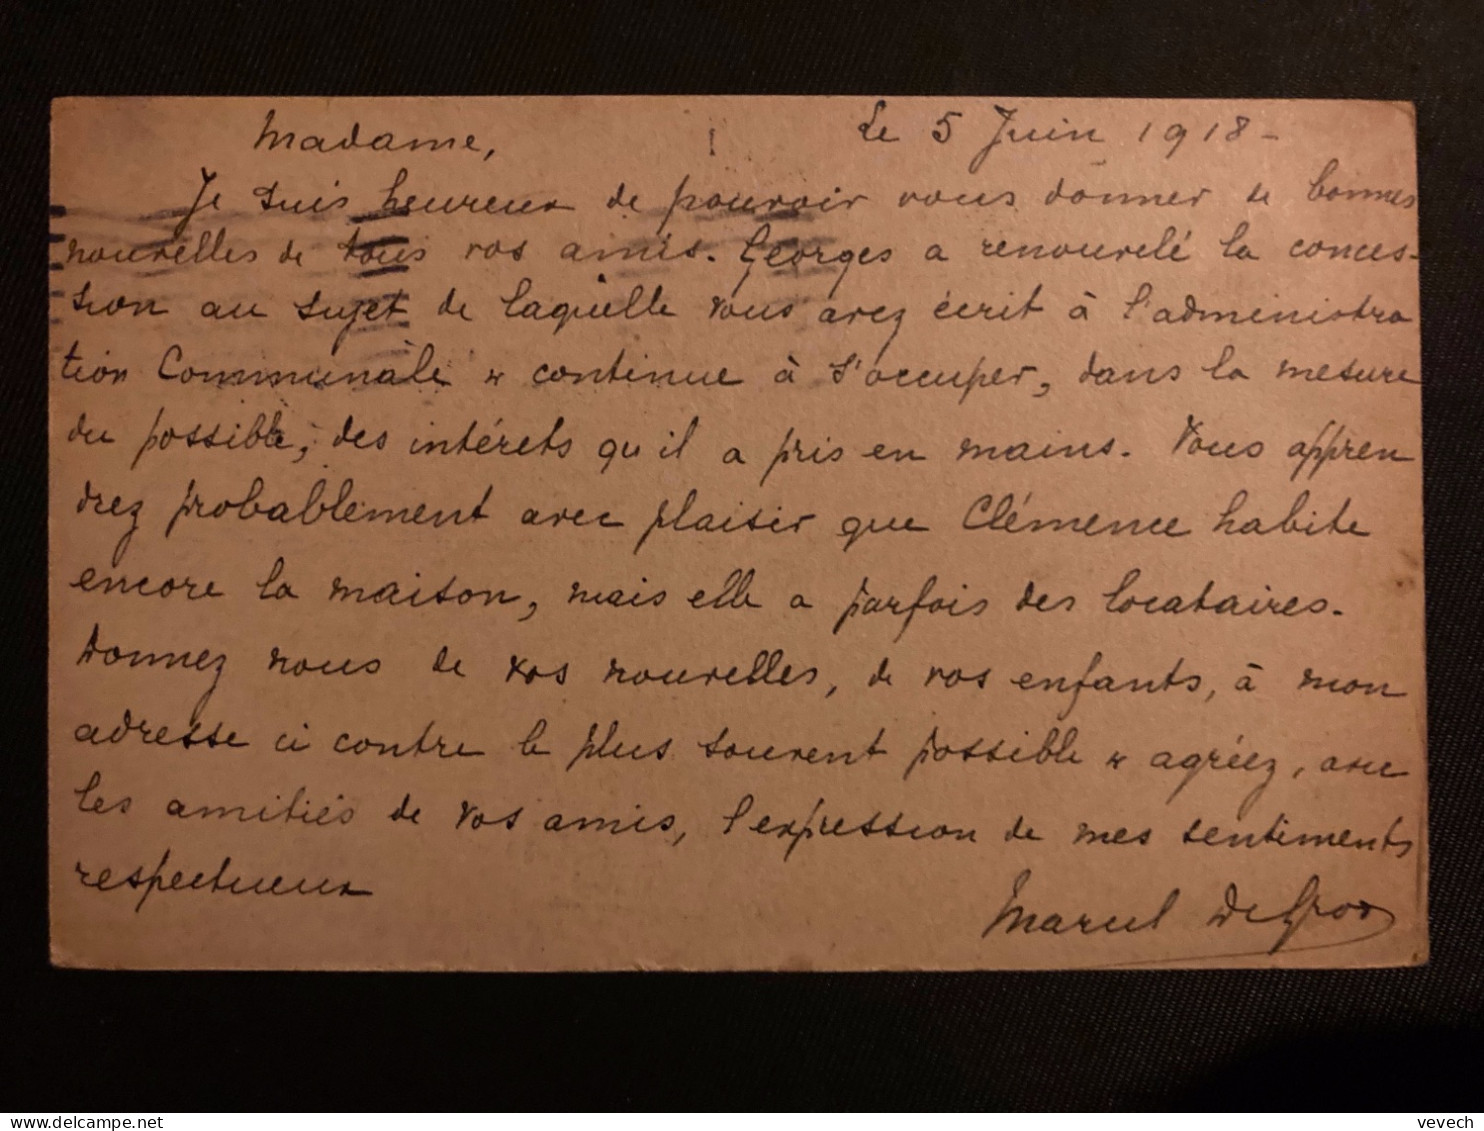 Madame, Le 5 Juin 1918 -
Je suis heureux de pouvoir vous donner de bonnes
nouvelles de tous vos amis. Georges a renouvelé la conces-
sion au sujet de laquelle vous avez écrit à l'administra
tion Communale & continue à s'occuper, dans la mesure
du possible, des intérets qu'il a pris en mains. Vous appren
drez probablement avec plaisir que Clémence habite
encore la maison, mais elle a parfois des locataires.
Donnez nous de vos nouvelles, de vos enfants, à mon
adresse ci contre le plus souvent possible & agréez, avec
les amitiés de vos amis, l'expression de mes sentiments
respectueux
Marcel
vevech